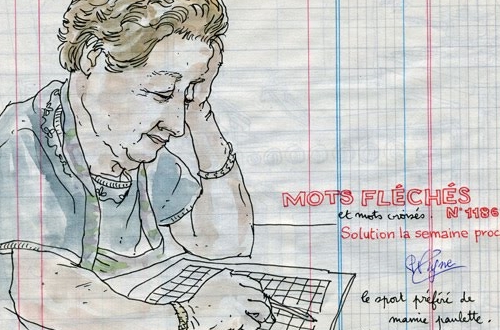 MOTS FLÉCHÉS
et mots croisés. N°1186
Solution la semaine proc
le sport préféré de
mamie paulette.